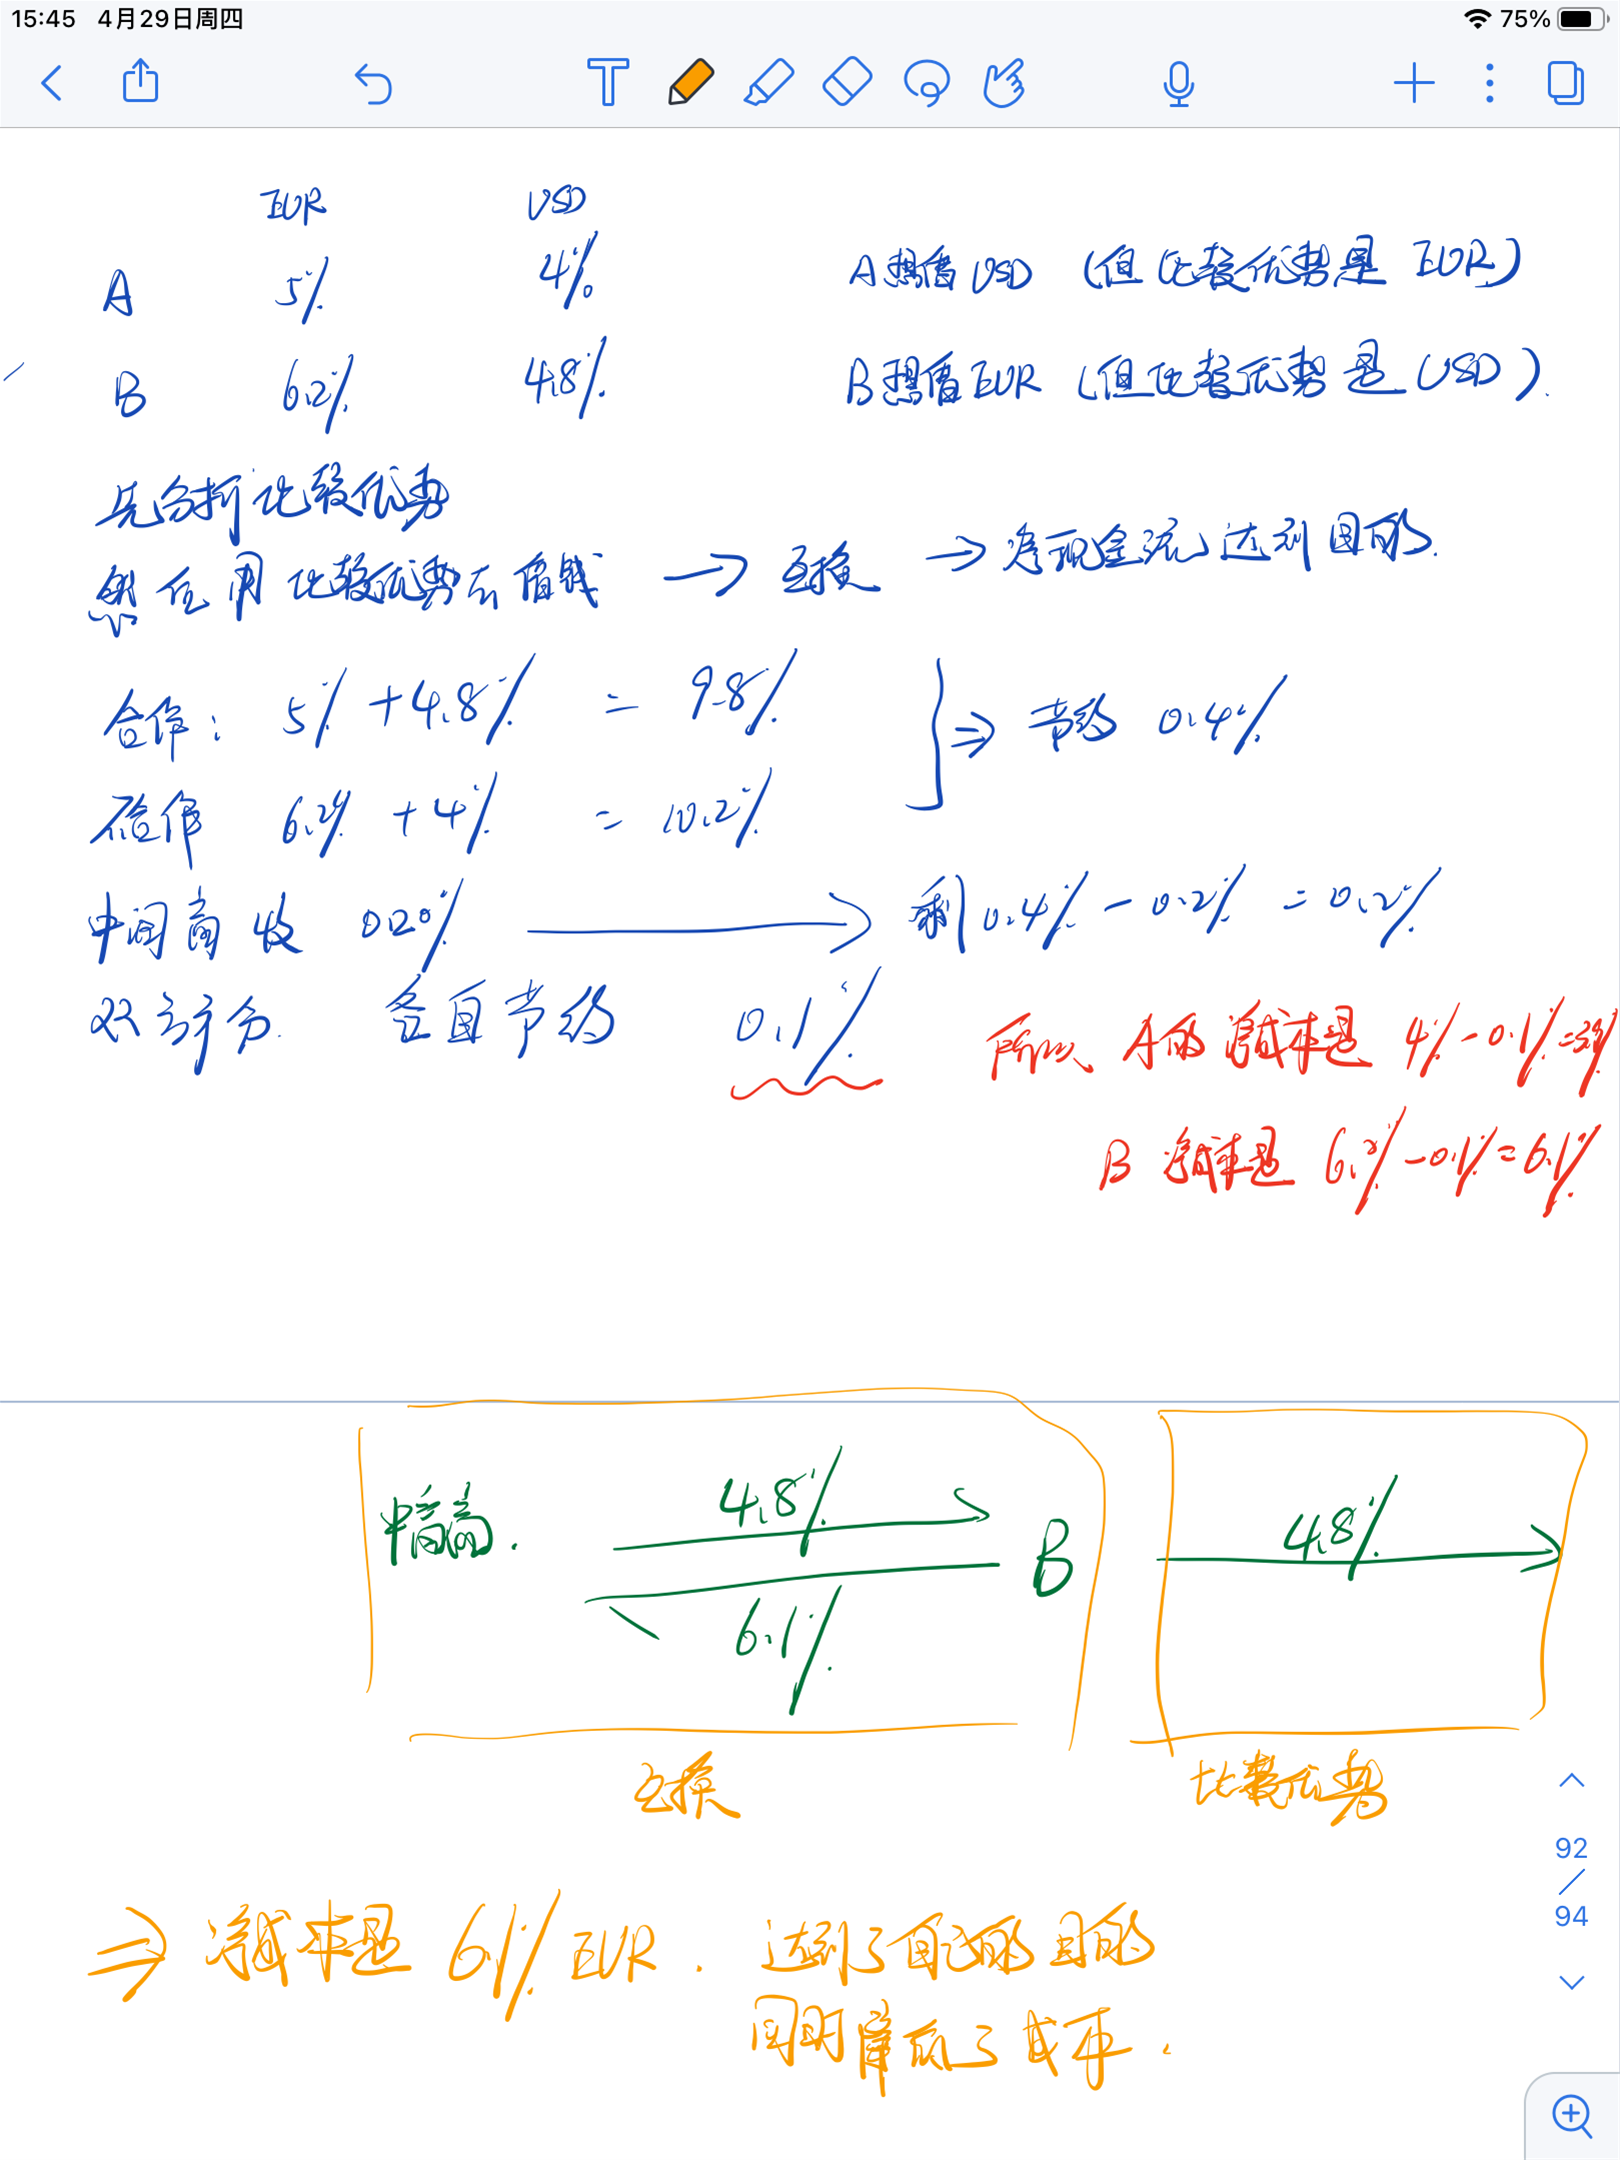 15:45 4月29日周四 75%
EUR USD
A 5% 4% A想借USD (但比较优势是 EUR)
B 6.2% 4.8% B想借EUR (但比较优势是USD).
先分析比较优势
然后用比较优势去借钱 → 互换 → 净现金流达到目的.
合作: 5% + 4.8% = 9.8% } ⇒ 节约 0.4%
不合作 6.2% + 4% = 10.2%
中间商收 0.20% → 剩 0.4% - 0.2% = 0.2%
双方平分. 各自节约 0.1%
所以 A的净成本是 4% - 0.1% = 3.9%
B 净成本是 6.2% - 0.1% = 6.1%
中间商. 4.8% B 4.8%
6.1%
互换 比较优势
92
/
94
⇒ 净成本是 6.1% EUR. 达到了自己的目的
同时降低了成本.